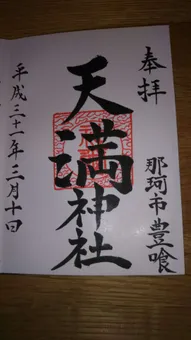 奉拝
那珂市豊喰
天満神社
平成三十一年二月十日